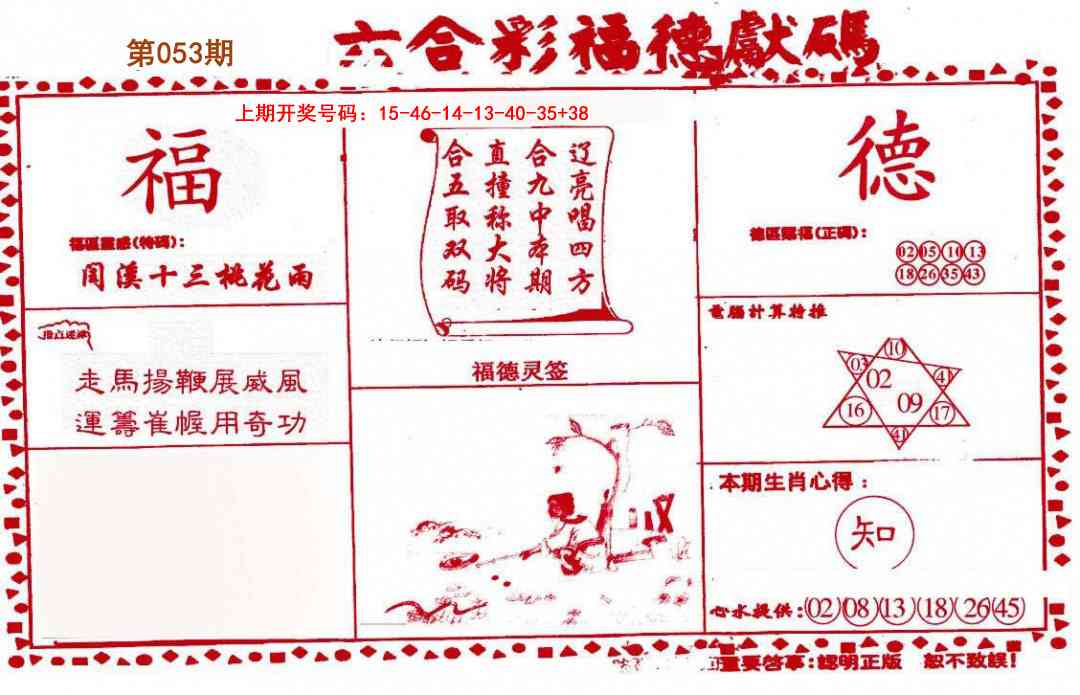 第053期
六合彩福德獻碼
上期开奖号码：15-46-14-13-40-35+38
福
福區靈感(特碼)：
闰溪十三桃花雨
指点迷津
走馬揚鞭展威風
運籌崔幄用奇功
辽亮唱四方
合九中本期
直撞称大将
合五取双码
福德灵签
德
德區賜福(正碼)：
02 05 10 13
18 26 35 43
電腦計算特推
10
03 02 41
16 09 17
41
本期生肖心得：
知
心水提供：(02)(08)(13)(18)(26)(45)
重要啓事：認明正版 恕不致誤！